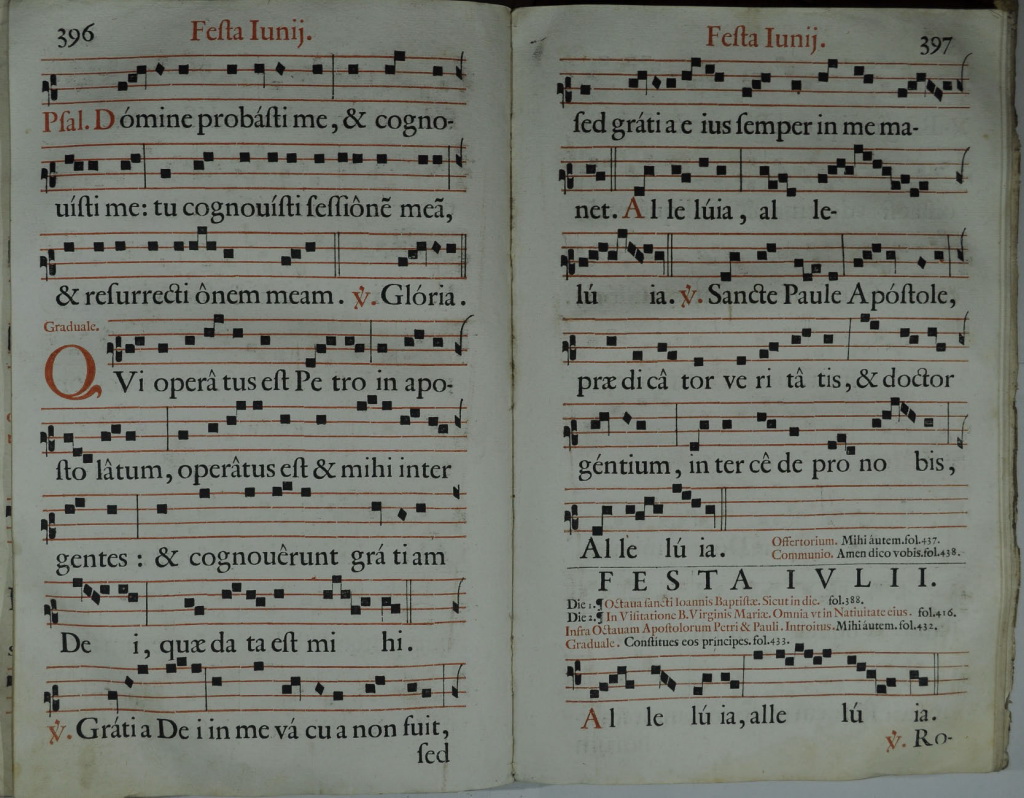 396
Festa Iunij.
Psal. Dómine probásti me, & cogno-
uísti me: tu cognouísti sessiônẽ meã,
& resurrecti ônem meam. ℣. Glória.
Graduale.
QVi operâ tus est Pe tro in apo-
sto lâtum, operâtus est & mihi inter
gentes : & cognouêrunt grá ti am
De i, quæ da ta est mi hi.
℣. Gráti a De i in me vá cu a non fuit,
sed
Festa Iunij.
397
sed gráti a e ius semper in me ma-
net. Al le lúia, al le-
lú ia. ℣. Sancte Paule Apóstole,
præ di câ tor ve ri tâ tis, & doctor
géntium, in ter cê de pro no bis,
Al le lú ia.
Offertorium. Mihi áutem. fol. 437.
Communio. Amen dico vobis. fol. 438.
FESTA IVLII.
Die 1. ¶ Octaua sancti Ioannis Baptistæ. Sicut in die. fol. 388.
Die 2. ¶ In Visitatione B. Virginis Mariæ. Omnia vt in Natiuitate eius. fol. 416.
Infra Octauam Apostolorum Petri & Pauli. Introitus. Mihi áutem. fol. 432.
Graduale. Constitues eos principes. fol. 433.
Al le lú ia, alle lú ia.
℣. Ro-